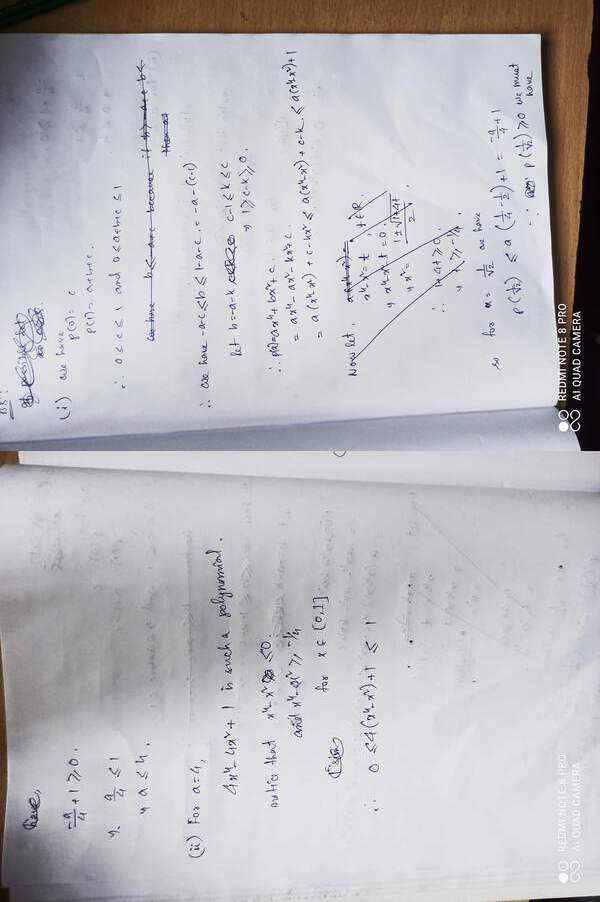 have,
-a/4 + 1 ≥ 0.
a/4 ≤ 1
a ≤ 4.
(ii) For a=4,
4x⁴-4x²+1 is such a polynomial.
notice that x⁴-x² ≤0.
and x⁴-x² ≥ -1/4
for x ∈ [0,1]
∴ 0 ≤4(x⁴-x²)+1 ≤ 1
REDMI NOTE 8 PRO
AI QUAD CAMERA
B5:
(i) we have
p(0)= c
p(1)= a+b+c.
∴ 0≤c≤1 and 0≤a+b+c≤1
we have b≤-a+c because if b>-a+c
then
∴ we have -a-c≤b≤1-a-c.=-a-(c-1)
let b=-a-k c-1≤k≤c
⇒ 1≥c-k≥0.
∴ p(x)=ax⁴+bx²+c.
= ax⁴-ax²-kx²+c.
= a(x⁴-x²)+c-kx² ≤ a(x⁴-x²)+c-k ≤ a(x⁴-x²)+1
Now let,
x⁴-x²=t, t∈R.
x⁴-x²-t=0.
x²= 1±√1+4t/2
∴ 1+4t≥0.
t≥-1/4.
so for x= 1/√2 we have
p(1/√2) ≤ a(1/4-1/2)+1 = -a/4+1
∵ p(1/√2)≥0 we must
have
REDMI NOTE 8 PRO
AI QUAD CAMERA